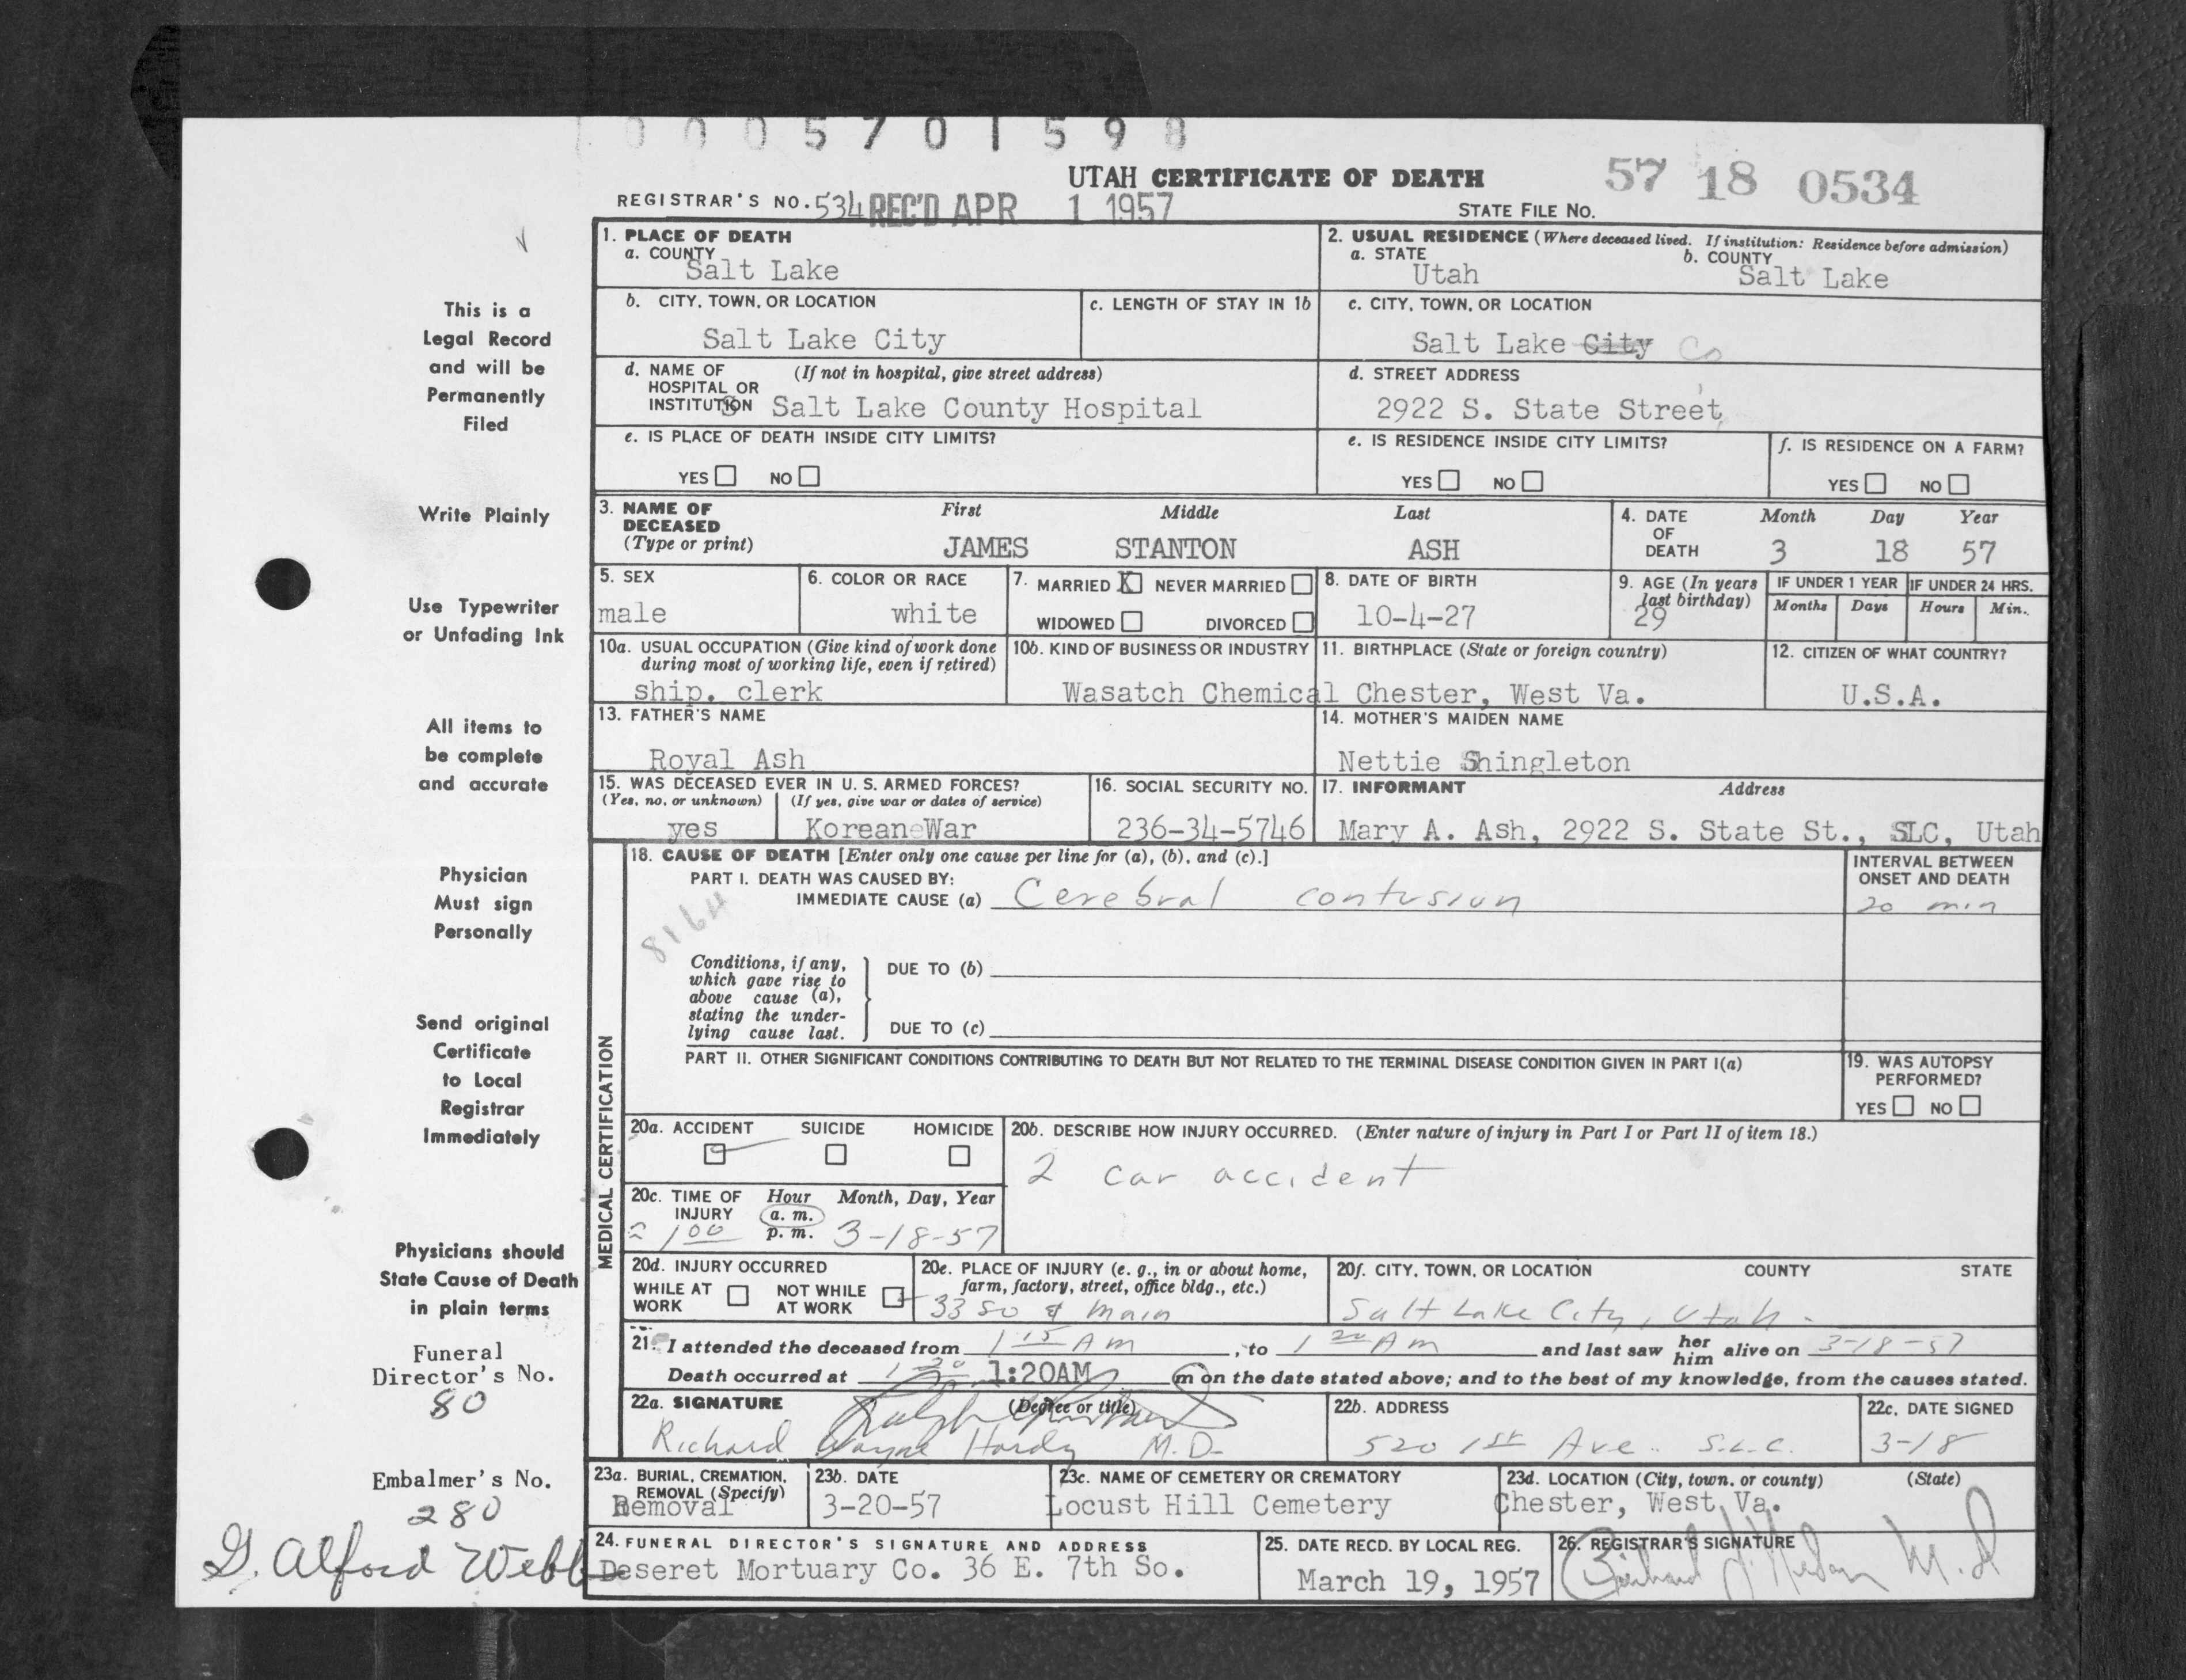 0 0 0 5 7 0 1 5 9 8
UTAH CERTIFICATE OF DEATH
57 18 0534
REGISTRAR'S NO. 534 REC'D APR 1 1957
STATE FILE NO.
1. PLACE OF DEATH
a. COUNTY
Salt Lake
2. USUAL RESIDENCE (Where deceased lived. If institution: Residence before admission)
a. STATE b. COUNTY
Utah Salt Lake
b. CITY, TOWN, OR LOCATION
Salt Lake City
c. LENGTH OF STAY IN 1b
c. CITY, TOWN, OR LOCATION
Salt Lake City Co
d. NAME OF (If not in hospital, give street address)
HOSPITAL OR
INSTITUTION Salt Lake County Hospital
d. STREET ADDRESS
2922 S. State Street
e. IS PLACE OF DEATH INSIDE CITY LIMITS?
YES NO
e. IS RESIDENCE INSIDE CITY LIMITS?
YES NO
f. IS RESIDENCE ON A FARM?
YES NO
3. NAME OF DECEASED (Type or print)
First Middle Last
JAMES STANTON ASH
4. DATE OF DEATH
Month Day Year
3 18 57
5. SEX
male
6. COLOR OR RACE
white
7. MARRIED X NEVER MARRIED
WIDOWED DIVORCED
8. DATE OF BIRTH
10-4-27
9. AGE (In years last birthday)
29
IF UNDER 1 YEAR IF UNDER 24 HRS.
Months Days Hours Min.
10a. USUAL OCCUPATION (Give kind of work done
during most of working life, even if retired)
ship. clerk
10b. KIND OF BUSINESS OR INDUSTRY
Wasatch Chemical
11. BIRTHPLACE (State or foreign country)
Chester, West Va.
12. CITIZEN OF WHAT COUNTRY?
U.S.A.
13. FATHER'S NAME
Royal Ash
14. MOTHER'S MAIDEN NAME
Nettie Shingleton
15. WAS DECEASED EVER IN U. S. ARMED FORCES?
(Yes, no, or unknown) (If yes, give war or dates of service)
yes Korean War
16. SOCIAL SECURITY NO.
236-34-5746
17. INFORMANT Address
Mary A. Ash, 2922 S. State St., SLC, Utah
MEDICAL CERTIFICATION
18. CAUSE OF DEATH [Enter only one cause per line for (a), (b), and (c).]
PART I. DEATH WAS CAUSED BY:
IMMEDIATE CAUSE (a) Cerebral contusion
INTERVAL BETWEEN
ONSET AND DEATH
20 min
8164
Conditions, if any,
which gave rise to
above cause (a),
stating the under-
lying cause last.
DUE TO (b)
DUE TO (c)
PART II. OTHER SIGNIFICANT CONDITIONS CONTRIBUTING TO DEATH BUT NOT RELATED TO THE TERMINAL DISEASE CONDITION GIVEN IN PART I(a)
19. WAS AUTOPSY
PERFORMED?
YES NO
20a. ACCIDENT SUICIDE HOMICIDE
20b. DESCRIBE HOW INJURY OCCURRED. (Enter nature of injury in Part I or Part II of item 18.)
2 car accident
20c. TIME OF INJURY Hour Month, Day, Year
a. m.
p. m.
≈ 1 00 3-18-57
20d. INJURY OCCURRED
WHILE AT WORK NOT WHILE AT WORK
20e. PLACE OF INJURY (e. g., in or about home,
farm, factory, street, office bldg., etc.)
33 So & Main
20f. CITY, TOWN, OR LOCATION COUNTY STATE
Salt Lake City, Utah.
21. I attended the deceased from 1 15 AM, to 1 20 AM and last saw her him alive on 3-18-57
Death occurred at 1 20 1:20AM m on the date stated above; and to the best of my knowledge, from the causes stated.
22a. SIGNATURE (Degree or title)
Richard Wayne Hardy M.D.
22b. ADDRESS
520 1st Ave. S.L.C.
22c. DATE SIGNED
3-18
23a. BURIAL, CREMATION,
REMOVAL (Specify)
Removal
23b. DATE
3-20-57
23c. NAME OF CEMETERY OR CREMATORY
Locust Hill Cemetery
23d. LOCATION (City, town, or county) (State)
Chester, West Va.
24. FUNERAL DIRECTOR'S SIGNATURE AND ADDRESS
Deseret Mortuary Co. 36 E. 7th So.
25. DATE RECD. BY LOCAL REG.
March 19, 1957
26. REGISTRAR'S SIGNATURE
M.D
This is a
Legal Record
and will be
Permanently
Filed
Write Plainly
Use Typewriter
or Unfading Ink
All items to
be complete
and accurate
Physician
Must sign
Personally
Send original
Certificate
to Local
Registrar
Immediately
Physicians should
State Cause of Death
in plain terms
Funeral
Director's No.
80
Embalmer's No.
280
G. Alford Webb